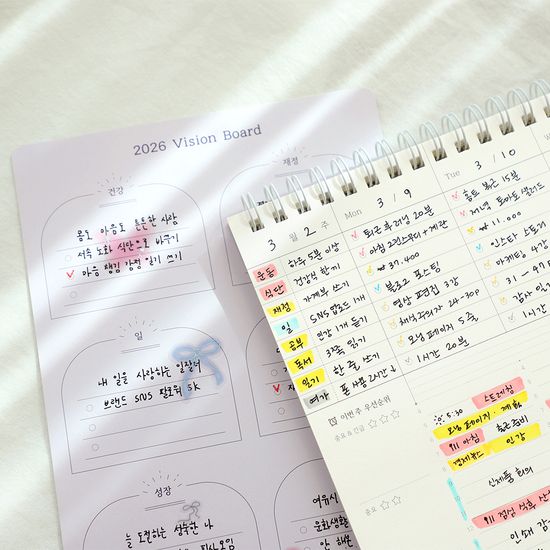 2026 Vision Board
건강
몸도 마음도 튼튼한 사람
저속 노화 식단으로 바꾸기
마음 챙김 감정 일기 쓰기
재정
일
내 일을 사랑하는 일잘러
브랜드 SNS 팔로워 5K
성장
늘 도전하는 성숙한 나
독서모임
여유시
문화생활
안 해본
3월 2주
Mon 3 / 9
Tue 3 / 10
운동 하루 5분 이상
퇴근 후 러닝 20분
홈트 복근 15분
식단 건강식 한끼
아침 그릭요거트+계란
저녁 토마토 샐러드
재정 가계부 쓰기
₩ 37.400
₩ 11.000
일 SNS 업로드 1개
블로그 포스팅
인스타 스
공부 인강 1개 듣기
영상 편집 3강
마케팅 4강
독서 33쪽 읽기
24-30p
31 - 47
일기 한 줄 쓰기
모닝 페이지 5줄
감사 일기
여가 폰 사용 2시간↓
1시간 20분
1시간
이번 주 우선순위
중요 & 긴급
중요
5:30
스트레칭
모닝 페이지 · 계획
911 아침
출근 준비
경제뉴스
인강
신제품 회의
911 점심
산책